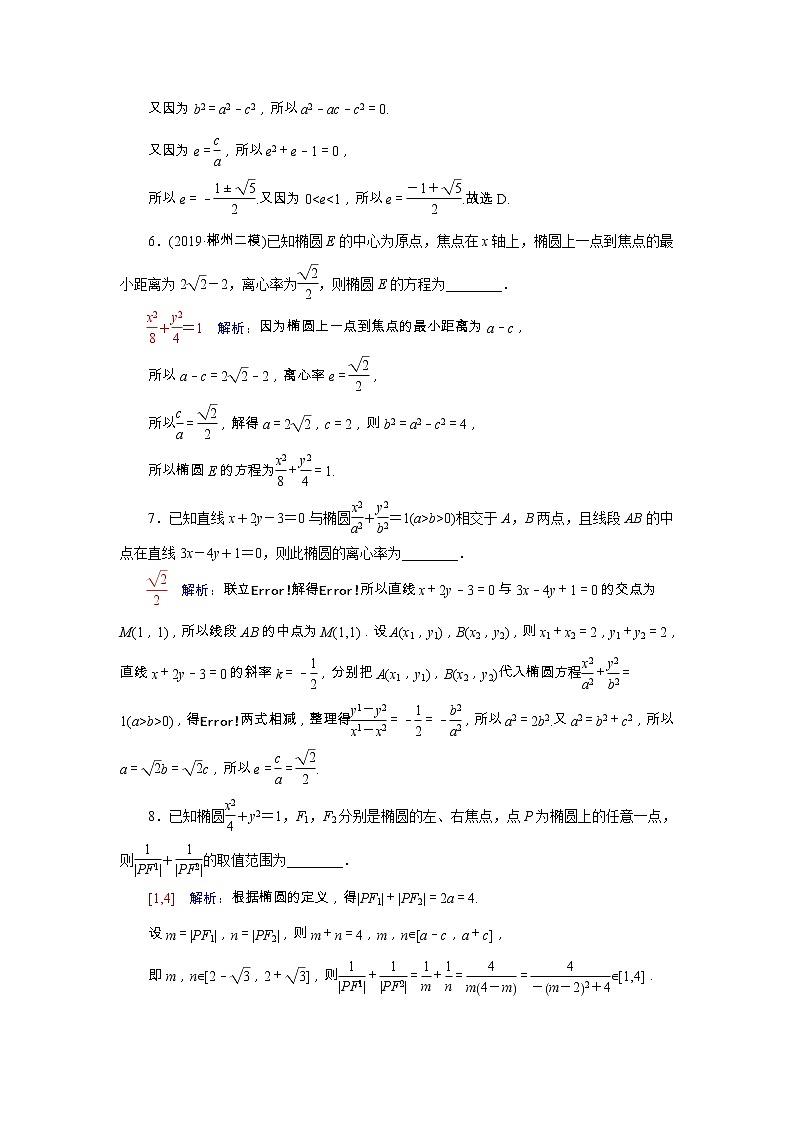 又因为 b²=a²-c²，所以 a²-ac-c²=0.
又因为 e=c/a，所以 e²+e-1=0，
所以 e=-(1±√5)/2.又因为 0<e<1，所以 e=(-1+√5)/2.故选 D.
6．(2019·郴州二模)已知椭圆 E 的中心为原点，焦点在 x 轴上，椭圆上一点到焦点的最
小距离为 2√2-2，离心率为√2/2，则椭圆 E 的方程为________．
x²/8+y²/4=1 解析：因为椭圆上一点到焦点的最小距离为 a-c，
所以 a-c=2√2-2，离心率 e=√2/2，
所以c/a=√2/2，解得 a=2√2，c=2，则 b²=a²-c²=4，
所以椭圆 E 的方程为x²/8+y²/4=1.
7．已知直线 x+2y-3=0 与椭圆x²/a²+y²/b²=1(a>b>0)相交于 A，B 两点，且线段 AB 的中
点在直线 3x-4y+1=0，则此椭圆的离心率为________．
√2/2 解析：联立Error!解得Error!所以直线 x+2y-3=0 与 3x-4y+1=0 的交点为
M(1，1)，所以线段 AB 的中点为 M(1,1)．设 A(x₁，y₁)，B(x₂，y₂)，则 x₁+x₂=2，y₁+y₂=2，
直线 x+2y-3=0 的斜率 k=-1/2，分别把 A(x₁，y₁)，B(x₂，y₂)代入椭圆方程x²/a²+y²/b²=
1(a>b>0)，得Error!两式相减，整理得(y1-y2)/(x1-x2)=-1/2=-b²/a²，所以 a²=2b².又 a²=b²+c²，所以
a=√2b=√2c，所以 e=c/a=√2/2.
8．已知椭圆x²/4+y²=1，F₁，F₂分别是椭圆的左、右焦点，点 P 为椭圆上的任意一点，
则1/|PF1|+1/|PF2|的取值范围为________．
[1,4] 解析：根据椭圆的定义，得|PF₁|+|PF₂|=2a=4.
设 m=|PF₁|，n=|PF₂|，则 m+n=4，m，n∈[a-c，a+c]，
即 m，n∈[2-√3，2+√3]，则1/|PF1|+1/|PF2|=1/m+1/n=4/(m(4-m))=4/(-(m-2)²+4)∈[1,4]．